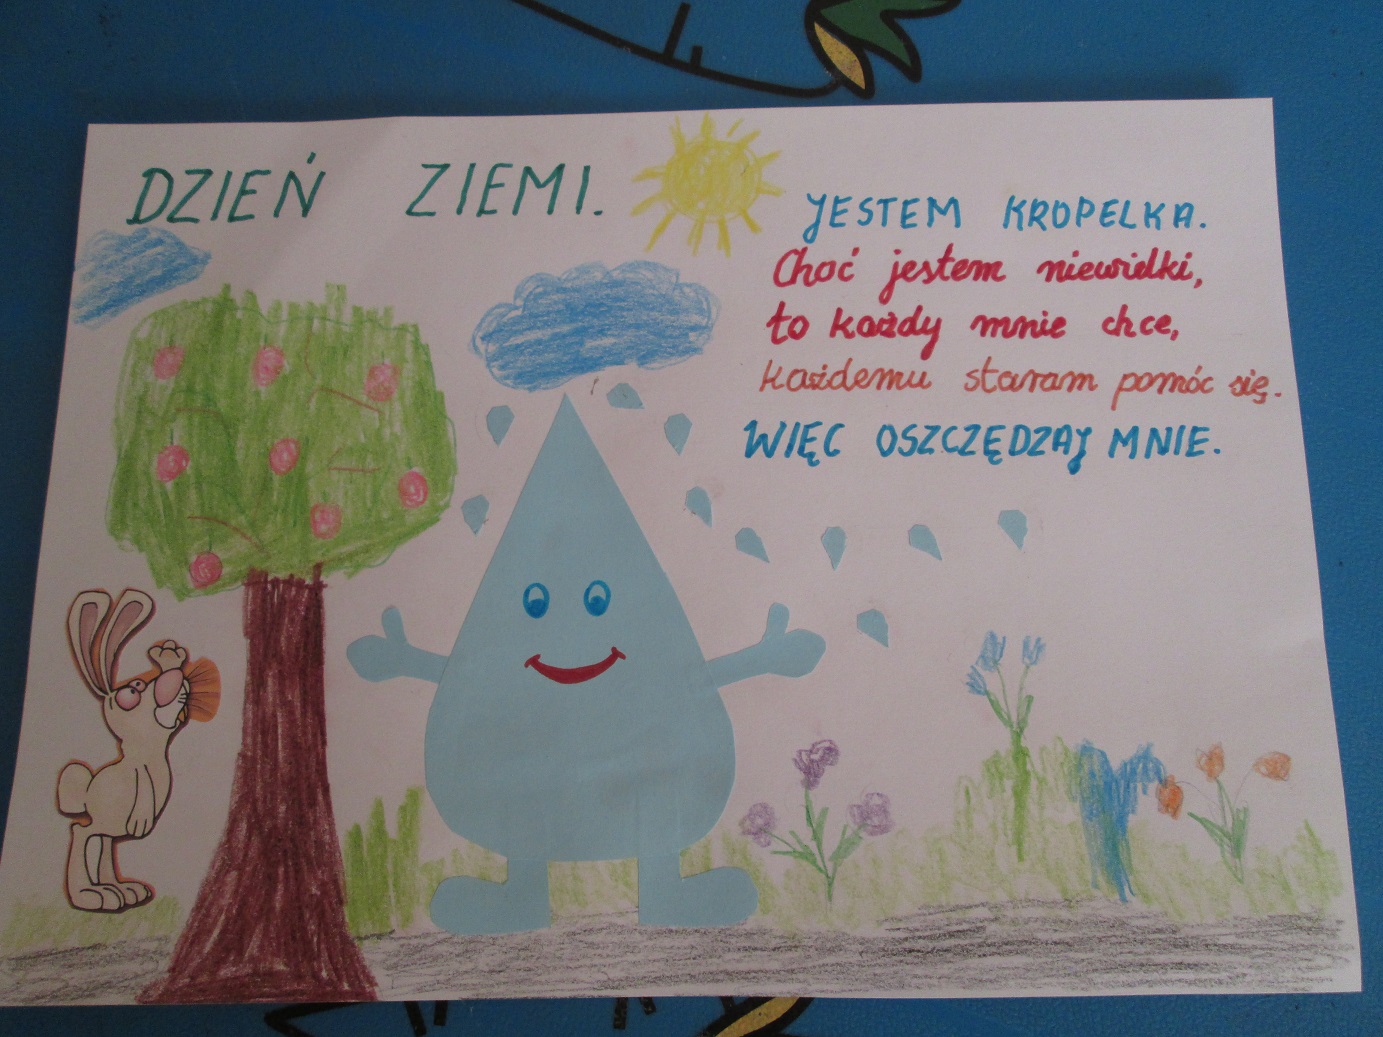 DZIEŃ ZIEMI.
JESTEM KROPELKA.
Choć jestem niewielki,
to każdy mnie chce,
każdemu staram pomóc się.
WIĘC OSZCZĘDZAJ MNIE.